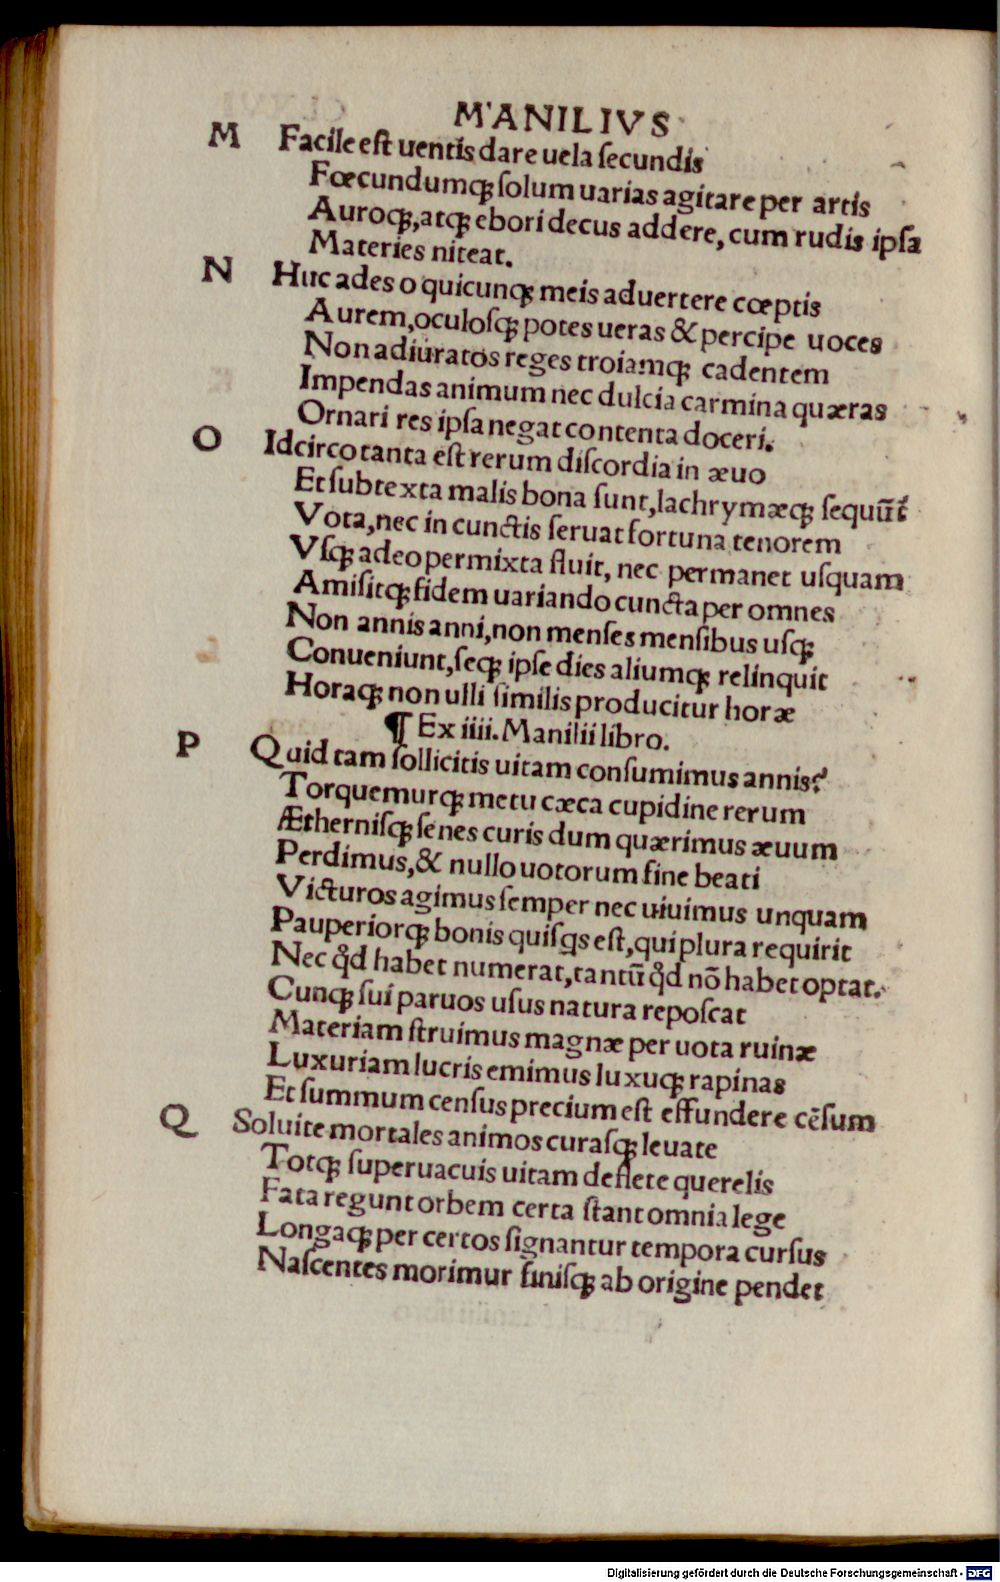 M'ANILIVS
M Facile eſt uentis dare uela ſecundis
Fœcundumqꝫ ſolum uarias agitare per artis
Auroqꝫ, atqꝫ ebori decus addere, cum rudis ipſa
Materies niteat.
N Huc ades o quicunqꝫ meis aduertere cœptis
Aurem, oculoſqꝫ potes ueras & percipe uoces
Non adiuratos reges troiamqꝫ cadentem
Impendas animum nec dulcia carmina quæras
Ornari res ipſa negat contenta doceri.
O Idcirco tanta eſt rerum diſcordia in æuo
Et ſubtexta malis bona ſunt, lachrymæqꝫ ſequūt᷑
Vota, nec in cunctis ſeruat fortuna tenorem
Vſqꝫ adeo permixta fluit, nec permanet uſquam
Amiſitqꝫ fidem uariando cuncta per omnes
Non annis anni, non menſes menſibus uſqꝫ
Conueniunt, ſeqꝫ ipſe dies aliumqꝫ relinquit
Horaqꝫ non ulli ſimilis producitur horæ
¶ Ex iiii. Manilii libro.
P Quid tam ſollicitis uitam conſumimus annis?
Torquemurqꝫ metu cæca cupidine rerum
Ætherniſqꝫ ſenes curis dum quærimus æuum
Perdimus, & nullo uotorum fine beati
Victuros agimus ſemper nec uiuimus unquam
Pauperiorqꝫ bonis quiſqs eſt, qui plura requirit
Nec qͦd habet numerat, tantū qͦd nō habet optat.
Cunqꝫ ſui paruos uſus natura repoſcat
Materiam ſtruimus magnæ per uota ruinæ
Luxuriam lucris emimus luxuqꝫ rapinas
Et ſummum cenſus precium eſt effundere cēſum
Q Soluite mortales animos curaſqꝫ leuate
Totqꝫ ſuperuacuis uitam deflete querelis
Fata regunt orbem certa ſtant omnia lege
Longaqꝫ per certos ſignantur tempora curſus
Naſcentes morimur finiſqꝫ ab origine pendet
Digitalisierung gefördert durch die Deutsche Forschungsgemeinschaft - DFG